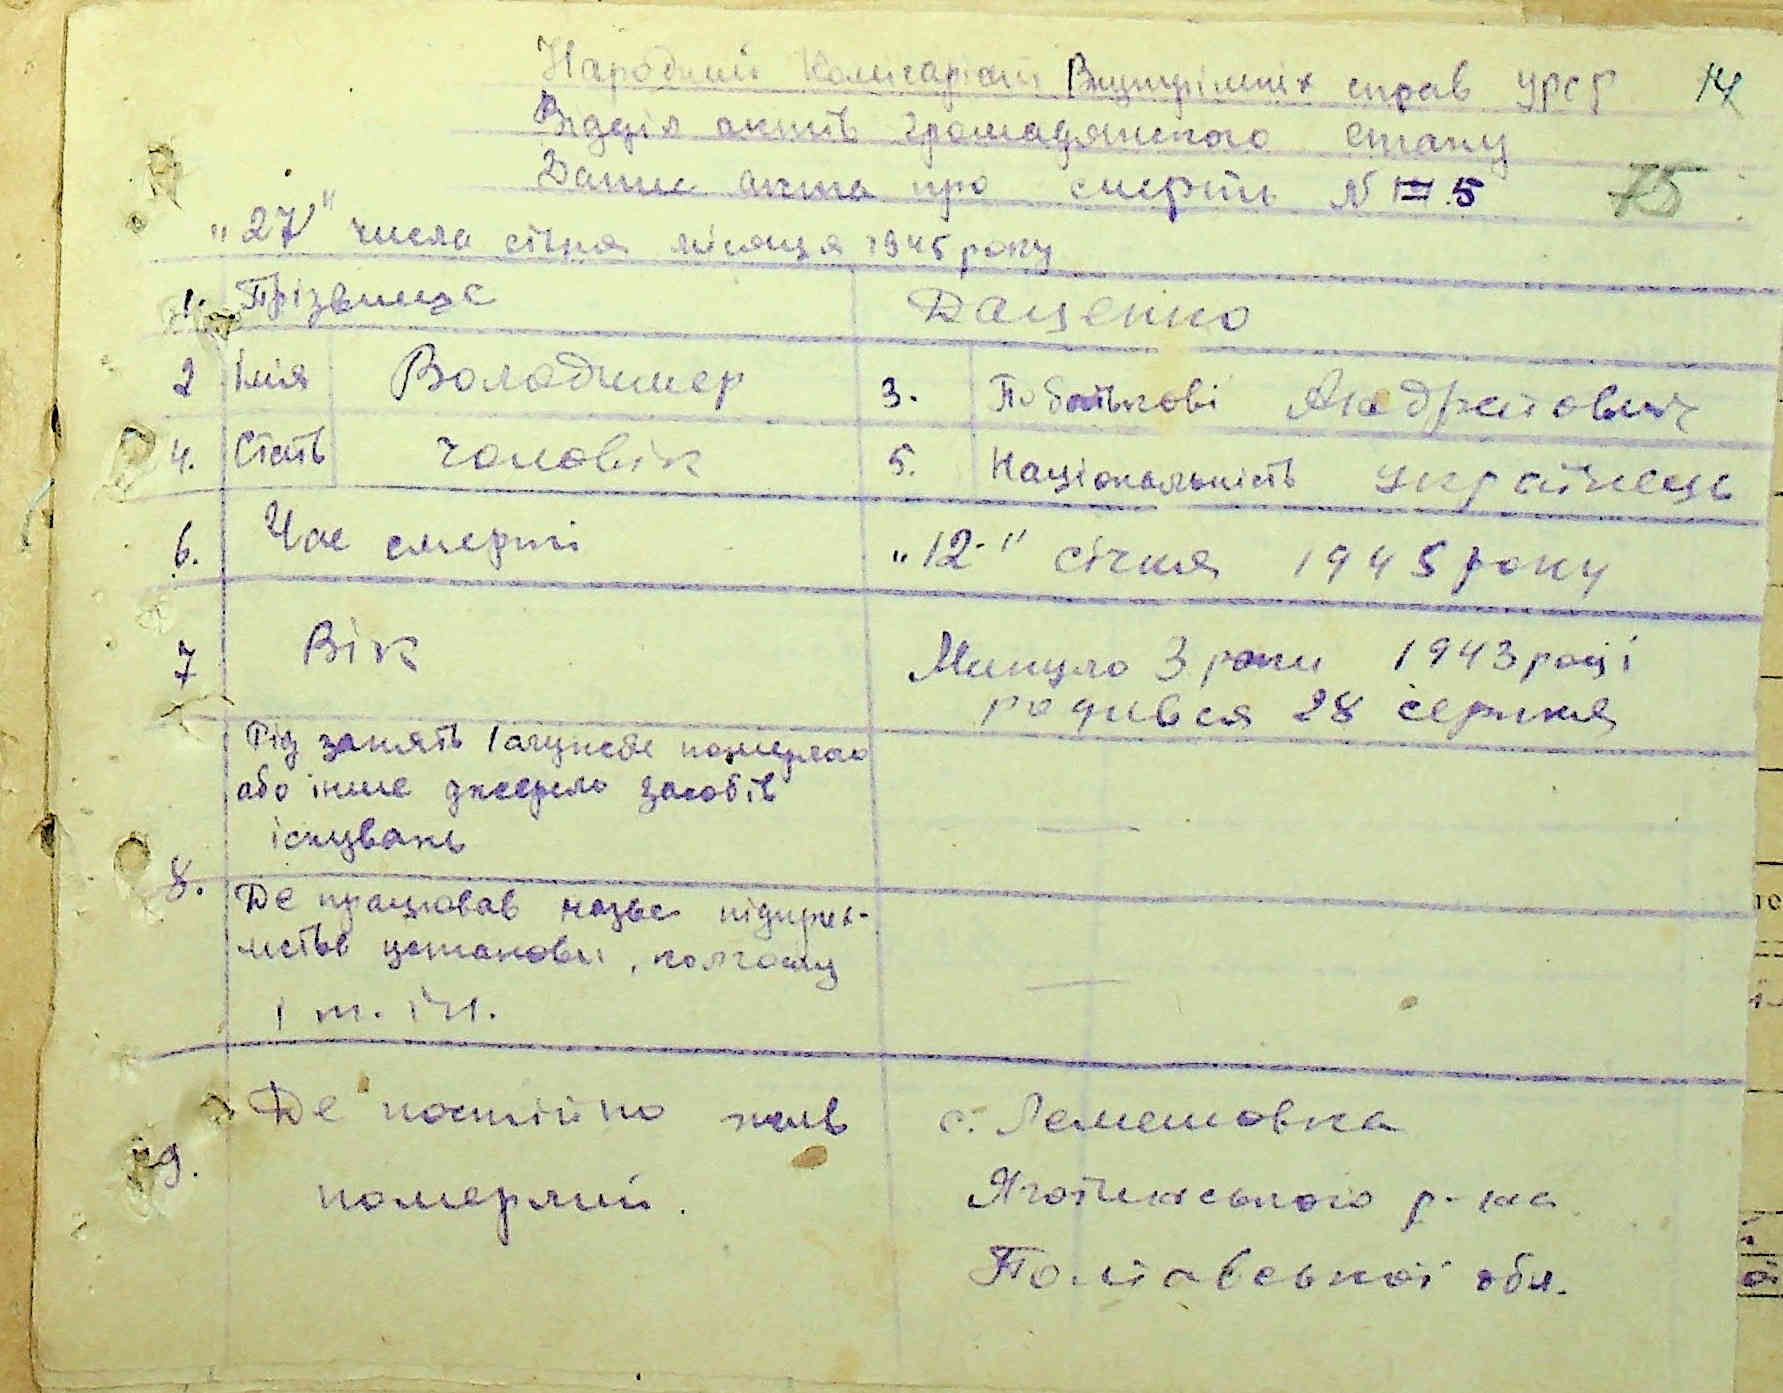 Народний Комісаріат Внутрішніх справ УРСР 14
Відділ актів громадянського стану
Запис акта про смерть N 5 75
"27" числа січня місяця 1945 року
1. Прізвище Даценко
2 Імія Володимер 3. Побатькові Андратович
4. Стать чоловік 5. Національність українець
6. Час смерті "12" січня 1945 року
7 Вік Минуло 3 роки 1943 році
родився 28 серпня
Рід занять померлао
або інше джерело засобів
існувань
8. Де працював назва підприє-
мства установи, колгоспу
і т. ін.
9. Де постійно жив с. Лемешовка
померлий. Яготинського р-на
Полтавської обл.